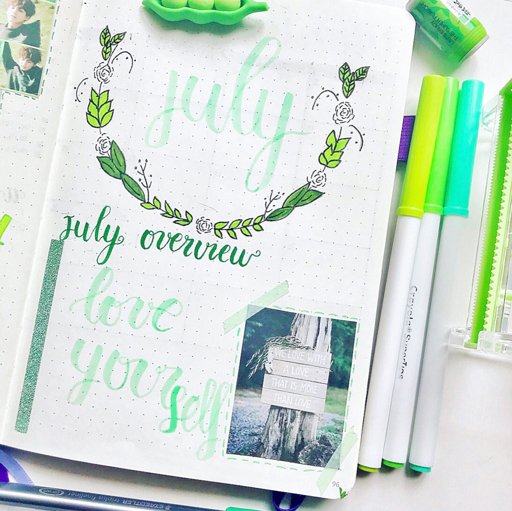 july
july overview
love
yourself
WE LOVE WITH
A LOVE
THAT IS MORE
THAN LOVE
Crayola SuperTips
STAEDTLER triplus fineliner
96